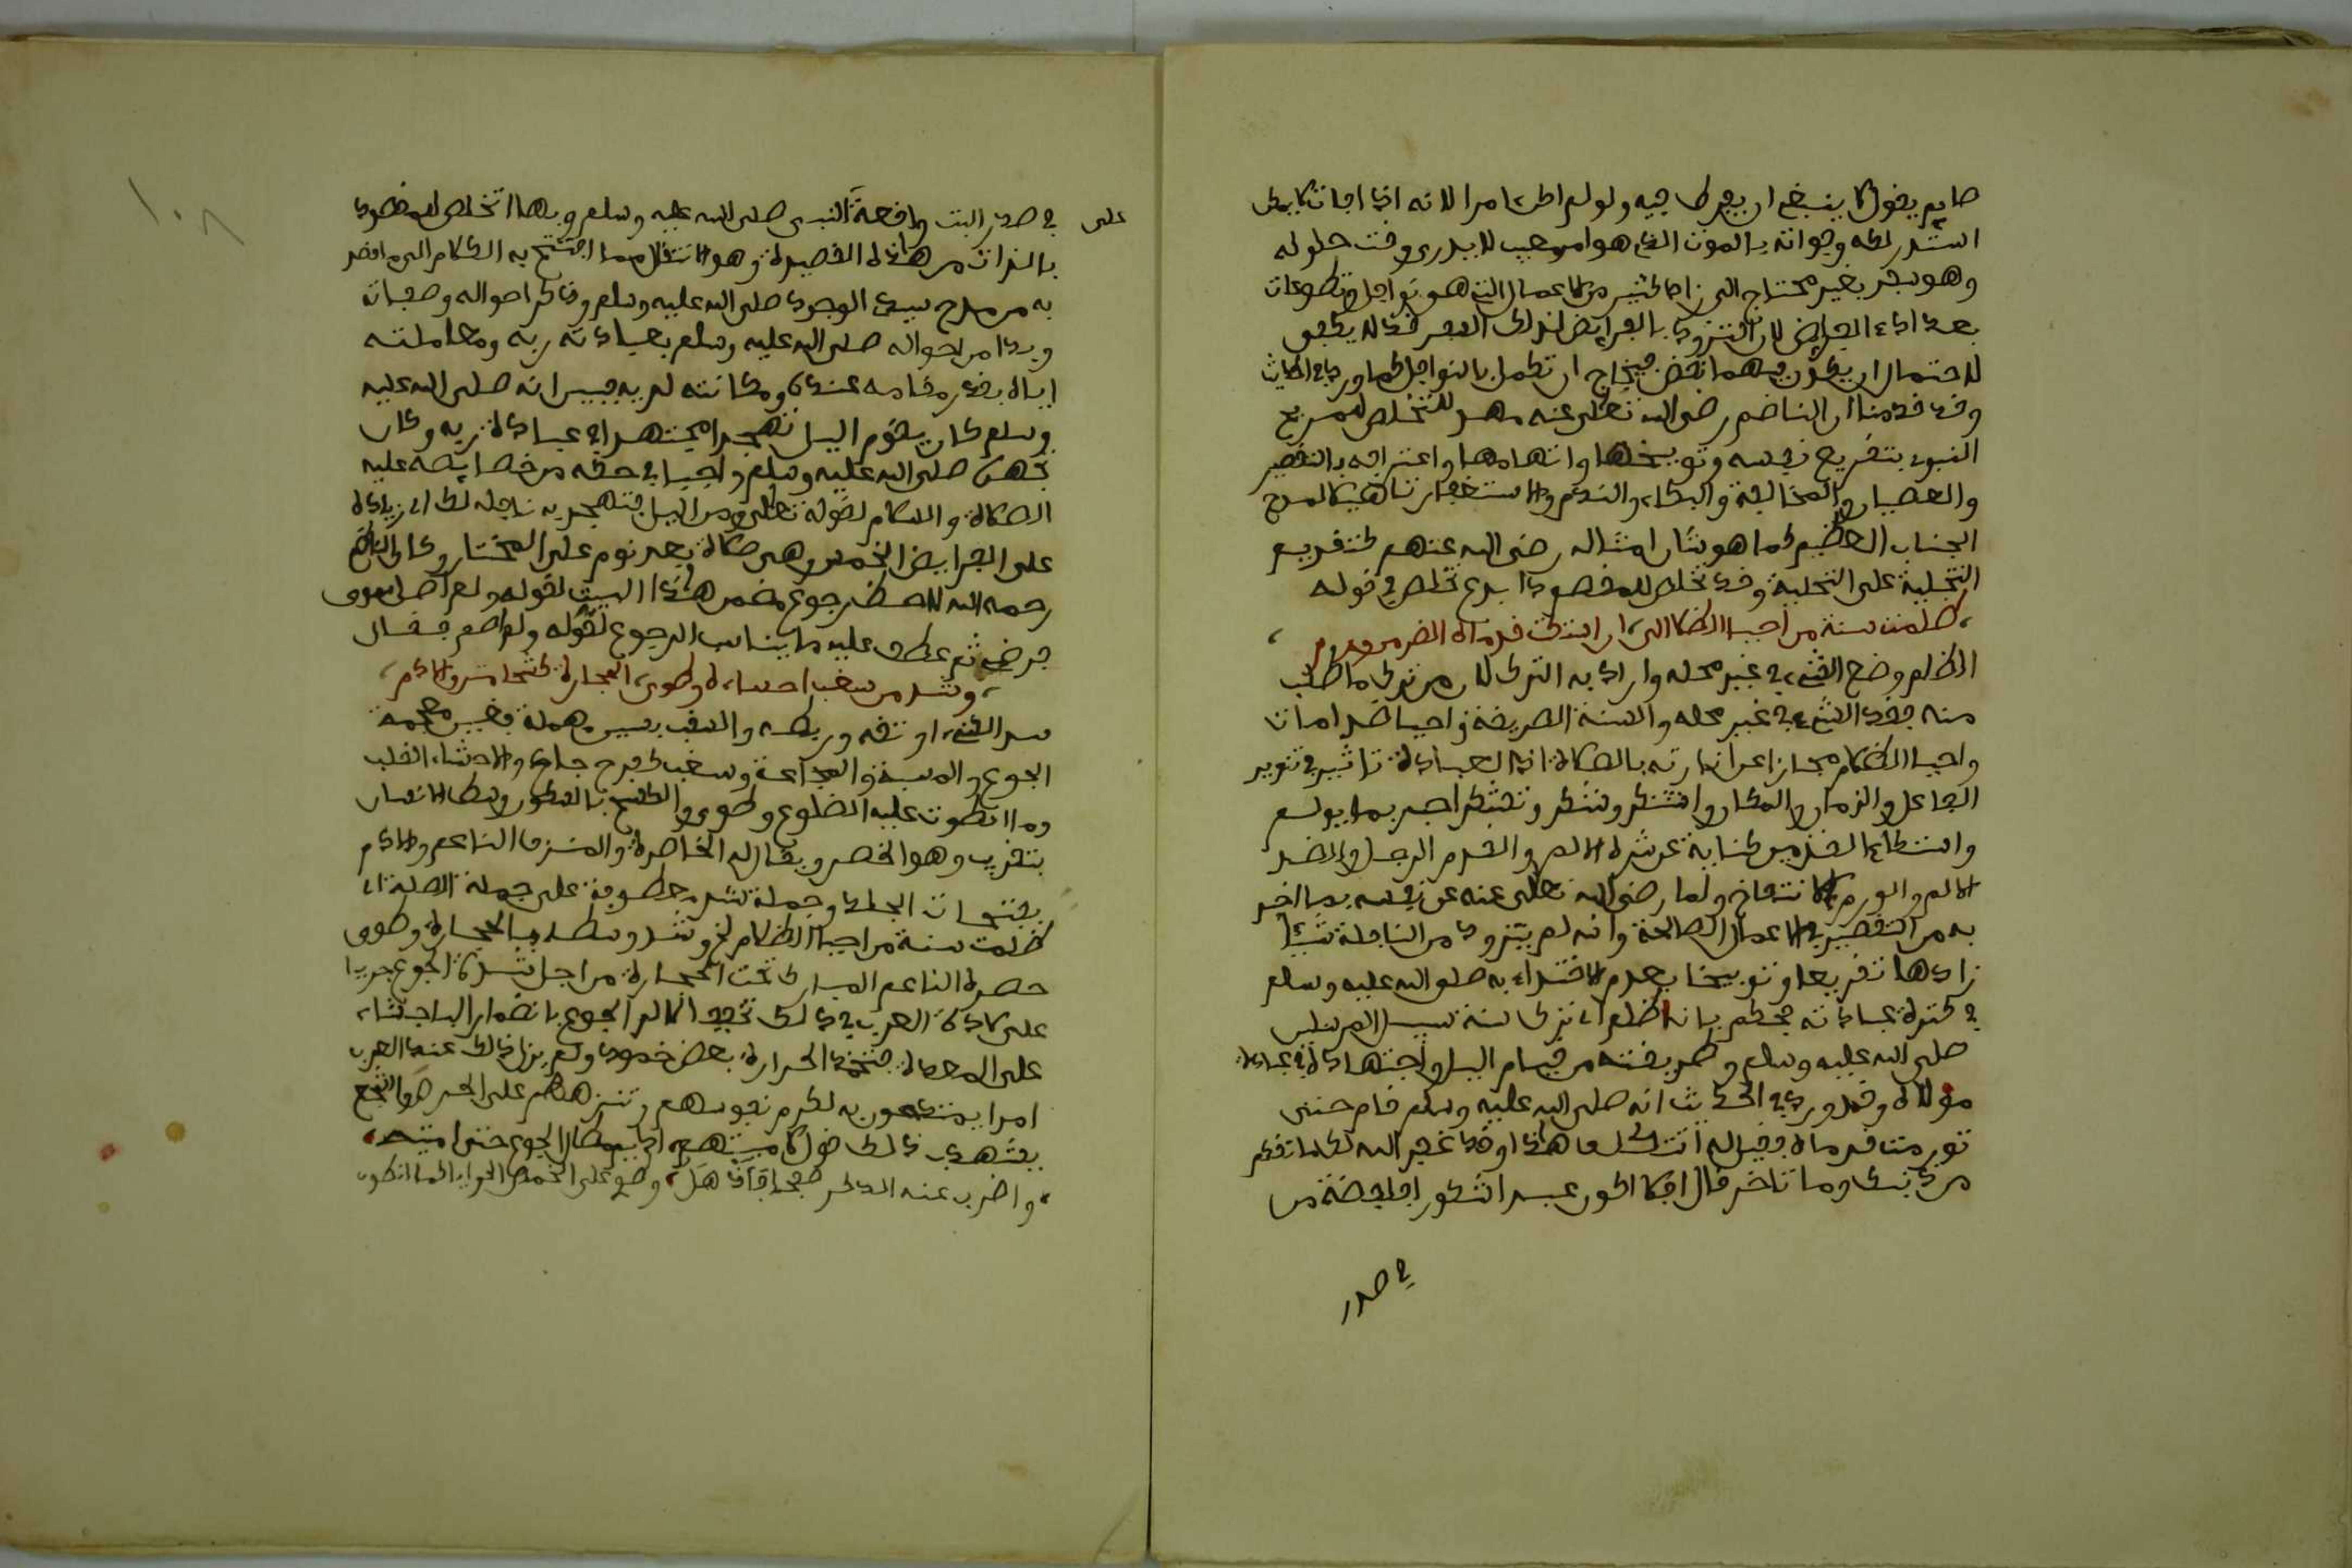 صايم يقول لا ينبغي ان يفرط فيه ولو لم اطل امرا لانه اذا فات لا يمكن
استدراكه وفواته بالموت الذي هو امر مغيب لا يدرى وقت حلوله
وهو سفر بعيد محتاج الى زاد كثير من الاعمال التي هو نوافل وتطوعات
بعد اداء الفرايض لان التزود بالفرايض لذلك السفر قد لا يكفي
لاحتمال ان يكون فيهما نقص فيحتاج ان تكمل بالنوافل كما ورد في الحديث
وقد قدمنا ان الناضم رضي الله تعلى عنه مهد للتخلص للمديح
النبوي بتقريع نفسه وتوبيخها واتهامها واعترافه بالتقصير
والعصيان والمخالفة والبكاء والندم والاستغفار تاهبا لمدح
الجناب العظيم كما هو شان امثاله رضي الله عنهم كتقديم
التخلية على التحلية وقد تخلص للمقصود ابدع تخلص في قوله
ظلمت سنة من احيا الظلام الى ان اشتكت قدماه الضر من ورم
الظلم وضع الشيء في غير محله واراد به الترك لان من ترك ما طلب
منه فقد وضع الشيء في غير محله والسنة الطريقة واحيا ضد امات
واحيا الظلام مجاز عن انارته بالصلاة اذ للعبادة تاثير في تنوير
الفاعل والزمان والمكان واشتكى وشكى وتشكى اخبر بما يولم
واشتكاء القدمين كناية عن شدة الالم والقدم الرجل والضر
الالم والورم الانتفاخ ولما رضي الله تعلى عنه عن نفسه بما اخبر
به من التقصير في الاعمال الصالحة وانه لم يتزود من النافلة شيئا
زادها تقريعا وتوبيخا بعدم الاقتداء به صلى الله عليه وسلم
في كثرة عباداته فحكم بانه ظلم اي ترك سنة سيد المرسلين
صلى الله عليه وسلم وطريقته من قيام الليل واجتهاده في عبادة
مولاه وقد ورد في الحديث انه صلى الله عليه وسلم قام حتى
تورمت قدماه فقيل له اتتكلف هذا وقد غفر الله لك ما تقدم
من ذنبك وما تاخر قال افلا اكون عبدا شكورا فايقضة من
في صدر
على في صدر البيت واقعة النبي صلى الله عليه وسلم وبهذا تخلص للمقصود
بالذات من هذه القصيدة وهو الانتقال مما افتتح به الكلام الى ما قصد
به من مدح سيد الوجود صلى الله عليه وسلم وذكر احواله وصفاته
وبدا من احواله صلى الله عليه وسلم بعبادته ربه ومعاملته
اياه بقدر مقامه عنده ومكانته لديه فبين انه صلى الله عليه
وسلم كان يقوم الليل تهجدا مجتهدا في عبادة ربه وكان
تهجده صلى الله عليه وسلم واجبا في حقه من خصايصه عليه
الصلاة والسلام لقوله تعلى ومن الليل فتهجد به نافلة لك اي زيادة
على الفرايض الخمس وهي صلاة بعد نوم على المختار وكان الناضم
رحمه الله لاحظ رجوع مضمن هذا البيت لقوله ولم اصل سوى
فرض ثم عطف عليه ما يناسب الرجوع لقوله ولم اصم فقال
وشد من سغب احشاءه وطوى تحت الحجارة كشحا مترف الادم
شد الشيء اوثقه وربطه والسغب بسين مهملة وغين معجمة
الجوع والمسغبة المجاعة وسغب كفرح جاع والاحشاء القلب
وما انطوت عليه الضلوع وطوى والكشح بالفتح وسكون الشين
بتقريب وهو الخصر ويقال له الخاصرة والمترف الناعم والادم
بفتحات الجلد وجملة شد معطوفة على جملة الصلة اي
ظلمت سنة من احيا الظلام الخ وشد وسطه بالحجارة وطوى
خصره الناعم المبارك تحت الحجارة من اجل شدة الجوع جريا
على عادة العرب في ذلك تخفيفا لالم الجوع بانضمام الاحشاء
على المعدة فتخمد الحرارة بعض خمود ولم يزل ذلك عند العرب
امرا يمتدحون به لكرم نفوسهم وتنزههم على الحرص والجشع
يشهد بذلك قول شاعرهم اديم مطال الجوع حتى اميته
واضرب عنه الذكر صفحا فاذهل وضم على الخمص الحوايا كما انطوت